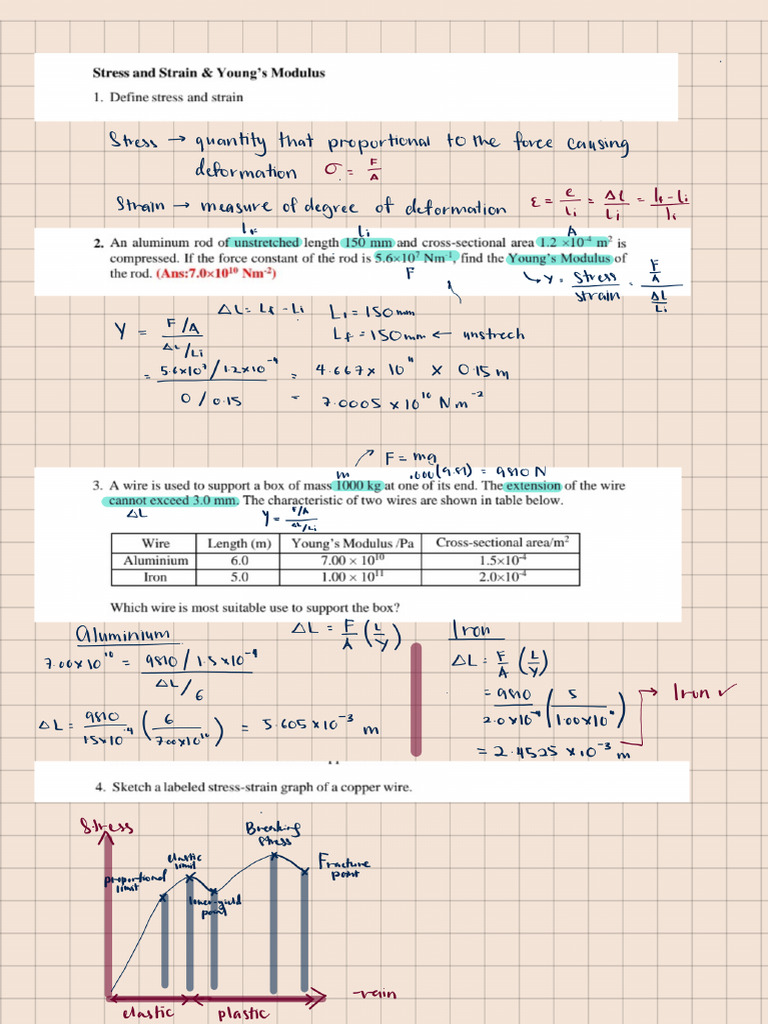 Stress and Strain & Young's Modulus
1. Define stress and strain
Stress → quantity that proportional to the force causing
deformation σ = F/A
Strain → measure of degree of deformation ε = e/Li = ΔL/Li = lf - Li/li
Lf Li A
2. An aluminum rod of unstretched length 150 mm and cross-sectional area 1.2 ×10⁻⁴ m² is
compressed. If the force constant of the rod is 5.6×10⁷ Nm⁻¹, find the Young's Modulus of
the rod. (Ans:7.0×10¹⁰ Nm⁻²)
F
↳ Y = Stress/Strain = F/A / ΔL/Li
ΔL = Lf - Li Li = 150 mm
Y = F/A / ΔL/Li
Lf = 150 mm ← unstrech
= 5.6×10⁷ / 1.2×10⁻⁴ / 0 / 0.15 = 4.667 × 10¹¹ × 0.15 m
= 7.0005 × 10¹⁰ Nm⁻²
F = mg
m 1000(9.81) = 9810 N
3. A wire is used to support a box of mass 1000 kg at one of its end. The extension of the wire
cannot exceed 3.0 mm. The characteristic of two wires are shown in table below.
ΔL
Y = F/A / ΔL/Li
Wire Length (m) Young's Modulus /Pa Cross-sectional area/m²
Aluminium 6.0 7.00 × 10¹⁰ 1.5×10⁻⁴
Iron 5.0 1.00 × 10¹¹ 2.0×10⁻⁴
Which wire is most suitable use to support the box?
Aluminium
ΔL = F/A (L/Y)
7.00×10¹⁰ = 9810 / 1.5×10⁻⁴ / ΔL/6
ΔL = 9810/1.5×10⁻⁴ (6/7.00×10¹⁰) = 5.605×10⁻³ m
Iron
ΔL = F/A (L/Y)
= 9810/2.0×10⁻⁴ (5/1.00×10¹¹)
= 2.4525 ×10⁻³ m
→ Iron ✓
4. Sketch a labeled stress-strain graph of a copper wire.
Stress
Breaking
stress
elastic
limit
Fracture
point
proportional
limit
lower-yield
point
rain
elastic plastic